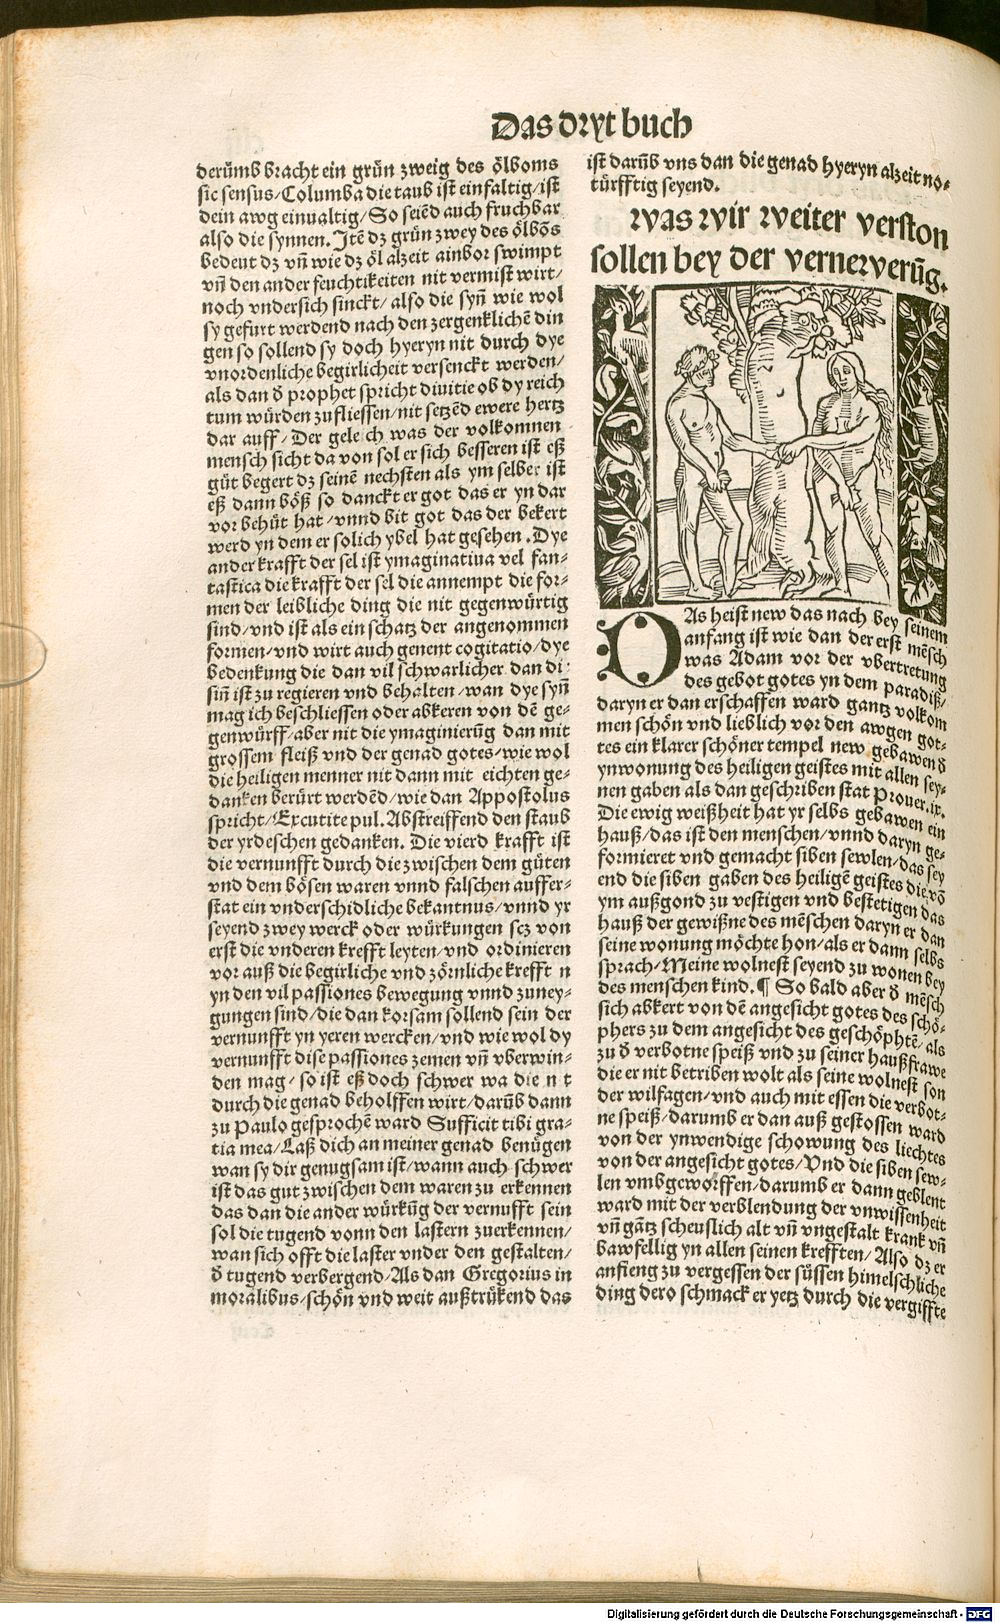 Das dryt buch
derümb bracht ein grün zweig des ölboms
sic sensus/Columba die taub ist einfaltig/ist
dein awg einualtig/So seiēd auch fruchbar
also die synnen. Itē dz grün zwey des ölbōs
bedeut dz vñ wie dz öl alzeit ainbor swimpt
vñ den ander feuchtikeiten nit vermist wirt/
noch vndersich sinckt/also die syñ wie wol
sy gefurt werdend nach den zergenklichē din
gen so sollend sy doch hyeryn nit durch dye
vnordenliche begirlicheit versenckt werden/
als dan δ prophet spricht diuitie ob dy reich
tum würden zufliessen/nit setzēd ewere hertz
dar auff/Der gele ch was der volkomnen
mensch sicht da von sol er sich besseren ist eß
güt begert dz seinē nechsten als ym selber ist
eß dann böß so danckt er got das er yn dar
vor behüt hat/vnnd bit got das der bekert
werd yn dem er solich ybel hat gesehen. Dye
ander krafft der sel ist ymaginatiua vel fan⸗
tastica die krafft der sel die annempt die for⸗
men der leibliche ding die nit gegenwürtig
sind/vnd ist als ein schatz der angenommen
formen/vnd wirt auch genent cogitatio/dye
bedenkung die dan vil schwarlicher dan di
siñ ist zu regieren vnd behalten/wan dye syñ
mag ich beschliessen oder abkeren von dē ge⸗
genwürff/aber nit die ymaginierūg dan mit
grossem fleiß vnd der genad gotes/wie wol
die heiligen menner nit dann mit eichten ge⸗
danken berürt werdēd/wie dan Appostolus
spricht/Excutite pul. Abstreiffend den staub
der yrdeschen gedanken. Die vierd krafft ist
die vernunfft durch die zwischen dem güten
vnd dem bösen waren vnnd falschen auffer⸗
stat ein vnderschidliche bekantnus/vnnd yr
seyend zwey werck oder würkungen scz von
erst die vnderen krefft leyten/vnd ordinieren
vor auß die begirliche vnd zörnliche krefft n
yn den vil passiones bewegung vnnd zuney⸗
gungen sind/die dan korsam sollend sein der
vernunfft yn yeren wercken/vnd wie wol dy
vernunfft dise passiones zemen vñ vberwin⸗
den mag/so ist eß doch schwer wa die n t
durch die genad beholffen wirt/darūb dann
zu Paulo gesprochē ward Sufficit tibi gra⸗
tia mea/Laß dich an meiner genad benügen
wan sy dir genugsam ist/wann auch schwer
ist das gut zwischen dem waren zu erkennen
das dan die ander würkūg der vernufft sein
sol die tugend vonn den lastern zuerkennen/
wan sich offt die laster vnder den gestalten/
δ tugend verbergend/Als dan Gregorius in
moralibus/schön vnd weit außtrükend das
ist darūb vns dan die genad hyeryn alzeit no⸗
türfftig seyend.
Was wir weiter verston
sollen bey der vernerverūg.
DAs heist new das nach bey seinem
anfang ist wie dan der erst mēsch
was Adam vor der vbertretung
des gebot gotes yn dem paradiß/
daryn er dan erschaffen ward gantz volkom
men schön vnd lieblich vor den awgen got⸗
tes ein klarer schöner tempel new gebawen δ
ynwonung des heiligen geistes mit allen sey⸗
nen gaben als dan geschriben stat Prouer.ix.
Die ewig weißheit hat yr selbs gebawen ein
hauß/das ist den menschen/vnnd daryn ge⸗
formieret vnd gemacht siben sewlen/das sey
end die siben gaben des heiligē geistes die vō
ym außgond zu vestigen vnd bestetigen das
hauß der gewißne des mēschen daryn er dan
seine wonung möchte hon/als er dann selbs
sprach/Meine wolnest seyend zu wonen bey
des menschen kind. ¶ So bald aber δ mēsch
sich abkert von dē angesicht gotes des schö⸗
phers zu dem angesicht des geschöphtē/als
zu δ verbotne speiß vnd zu seiner haußfrawe
die er nit betriben wolt als seine wolnest son
der wilfagen/vnd auch mit essen die verbot⸗
ne speiß/darumb er dan auß gestossen ward
von der ynwendige schowung des liechtes
von der angesicht gotes/Vnd die siben sew⸗
len vmbgeworffen/darumb er dann geblent
ward mit der verblendung der vnwissenheit
vñ gātz scheuslich alt vñ vngestalt krank vñ
bawfellig yn allen seinen krefften/Also dz er
anfieng zu vergessen der süssen himelschliche
ding dero schmack er yetz durch die vergiffte
Digitalisierung gefördert durch die Deutsche Forschungsgemeinschaft - DFG